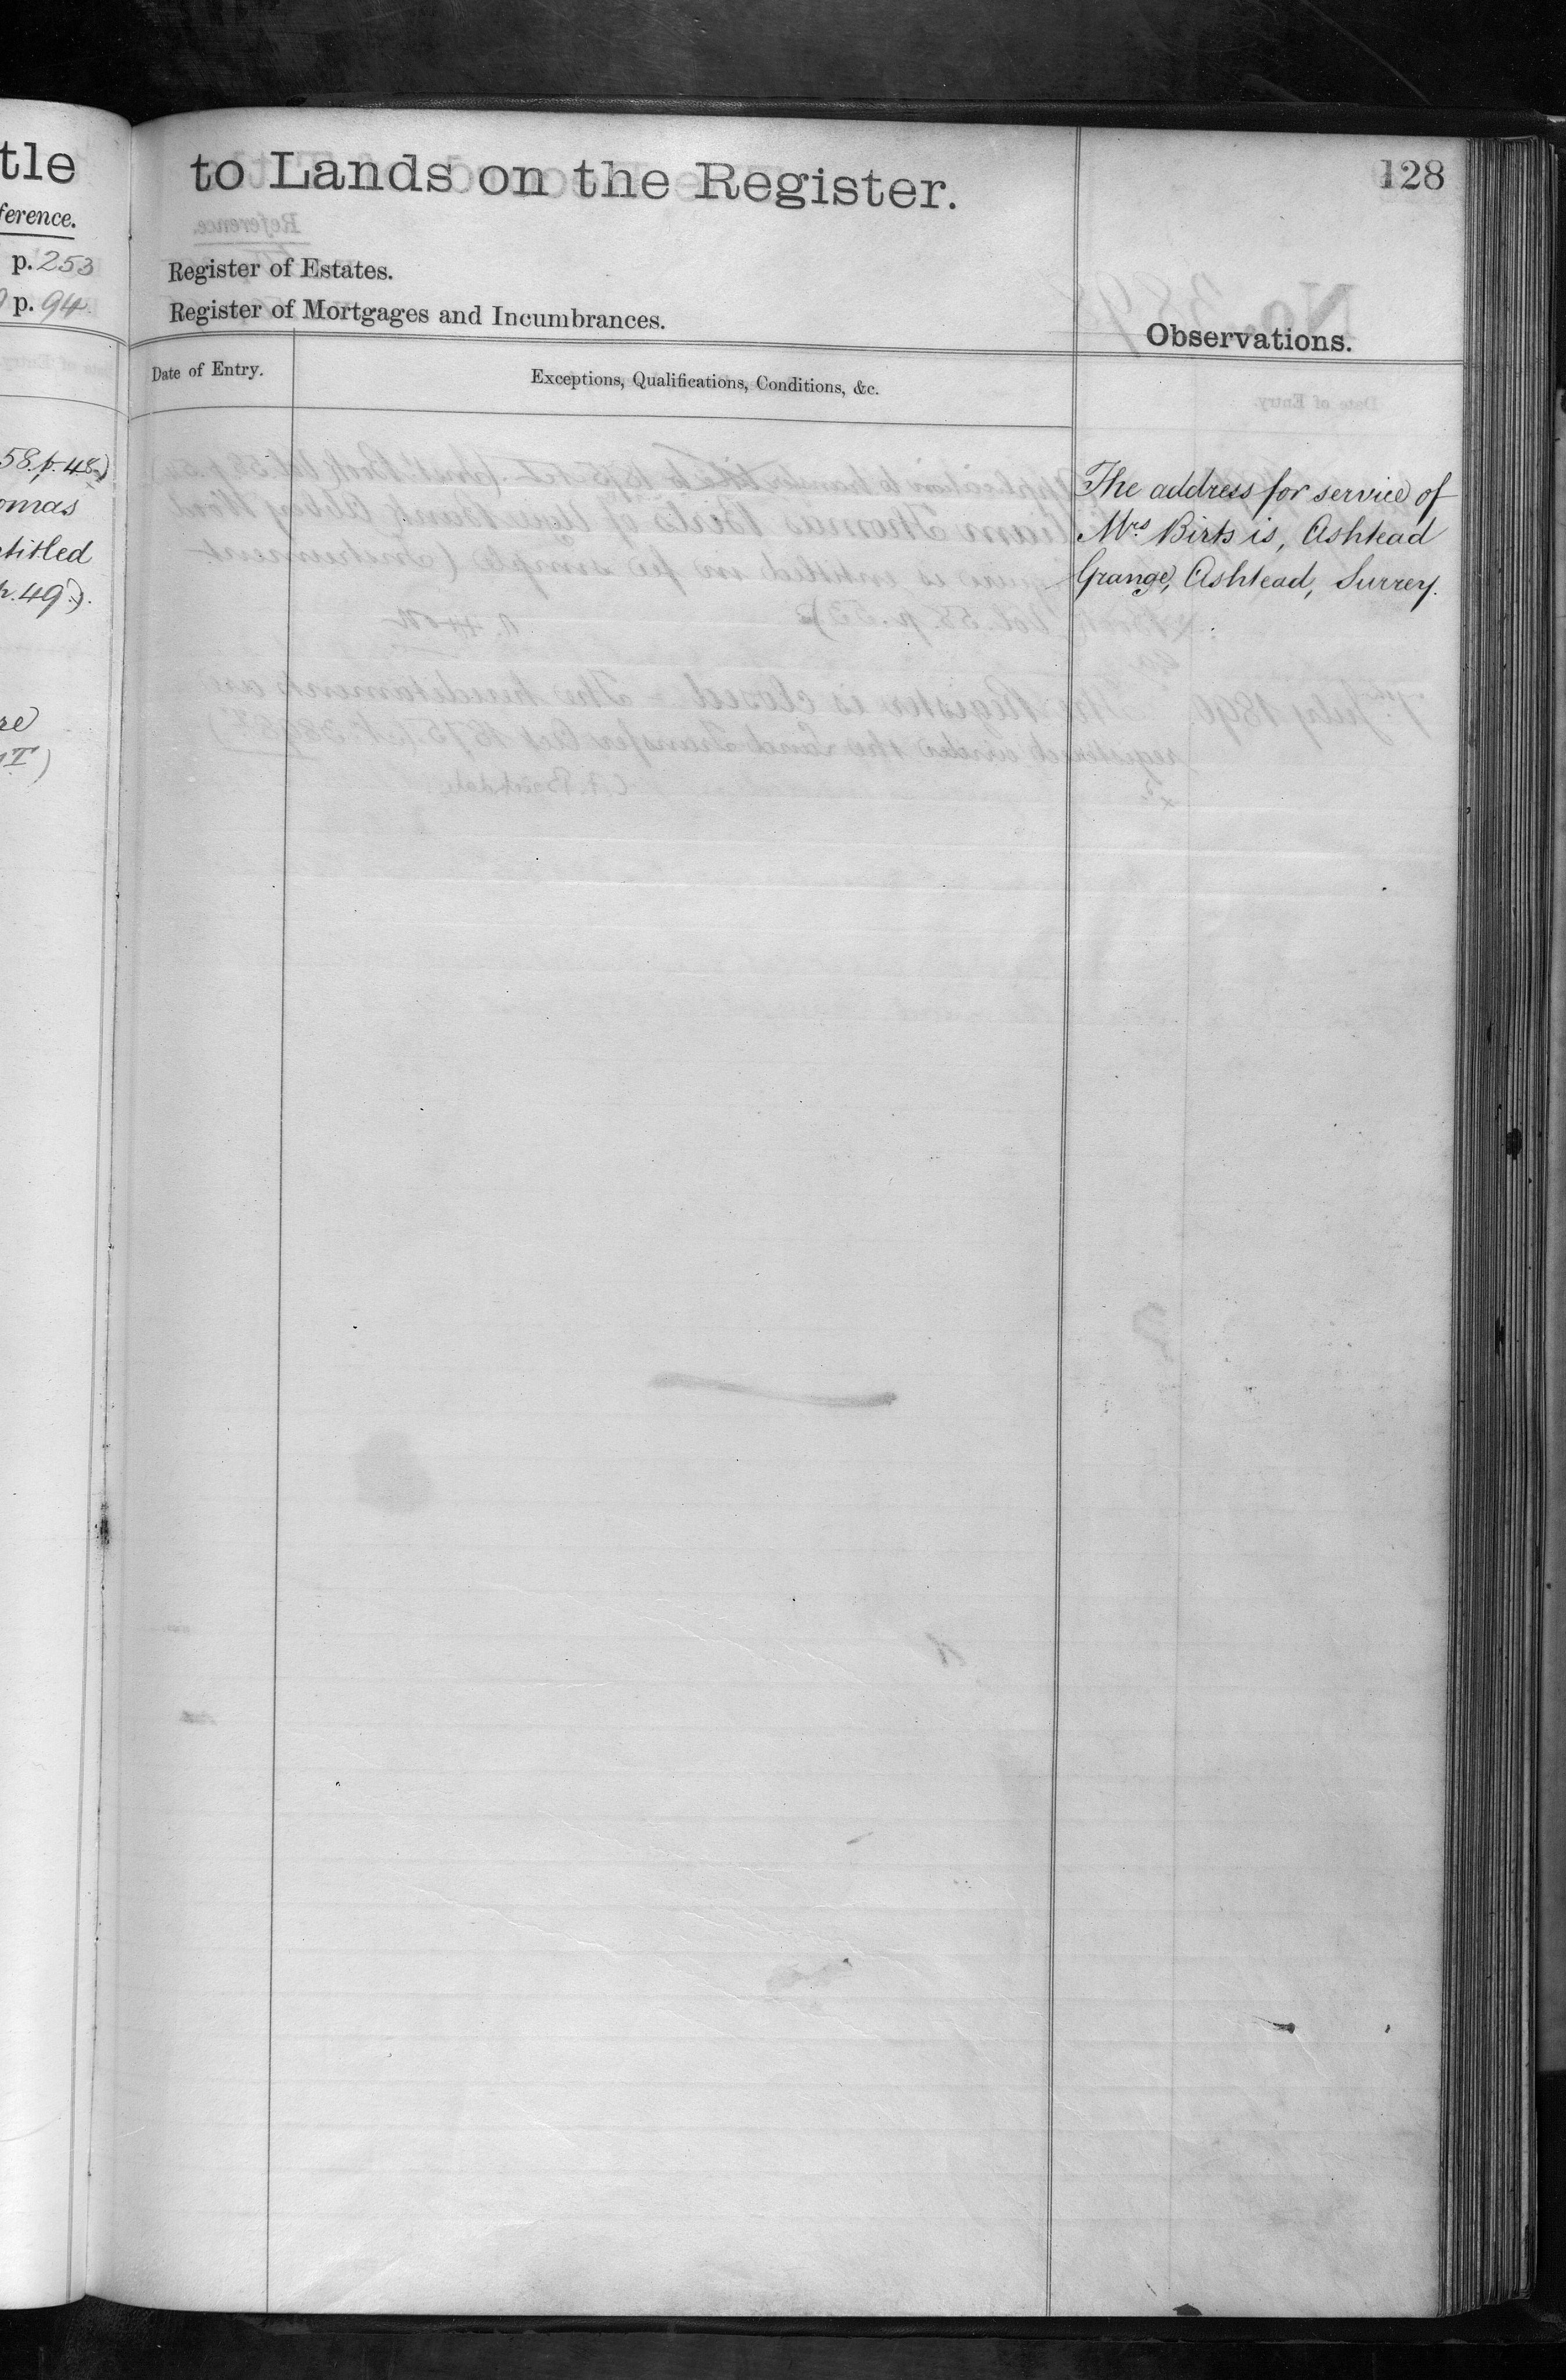 tle
ference.
p. 253
p. 94
58. p. 48.)
omas
ntitled
p. 49.).
re
to Lands on the Register.
128
Register of Estates.
Register of Mortgages and Incumbrances.
Observations.
Date of Entry.
Exceptions, Qualifications, Conditions, &c.
The address for service of
Mrs Birts is, Ashtead
Grange, Ashtead, Surrey.